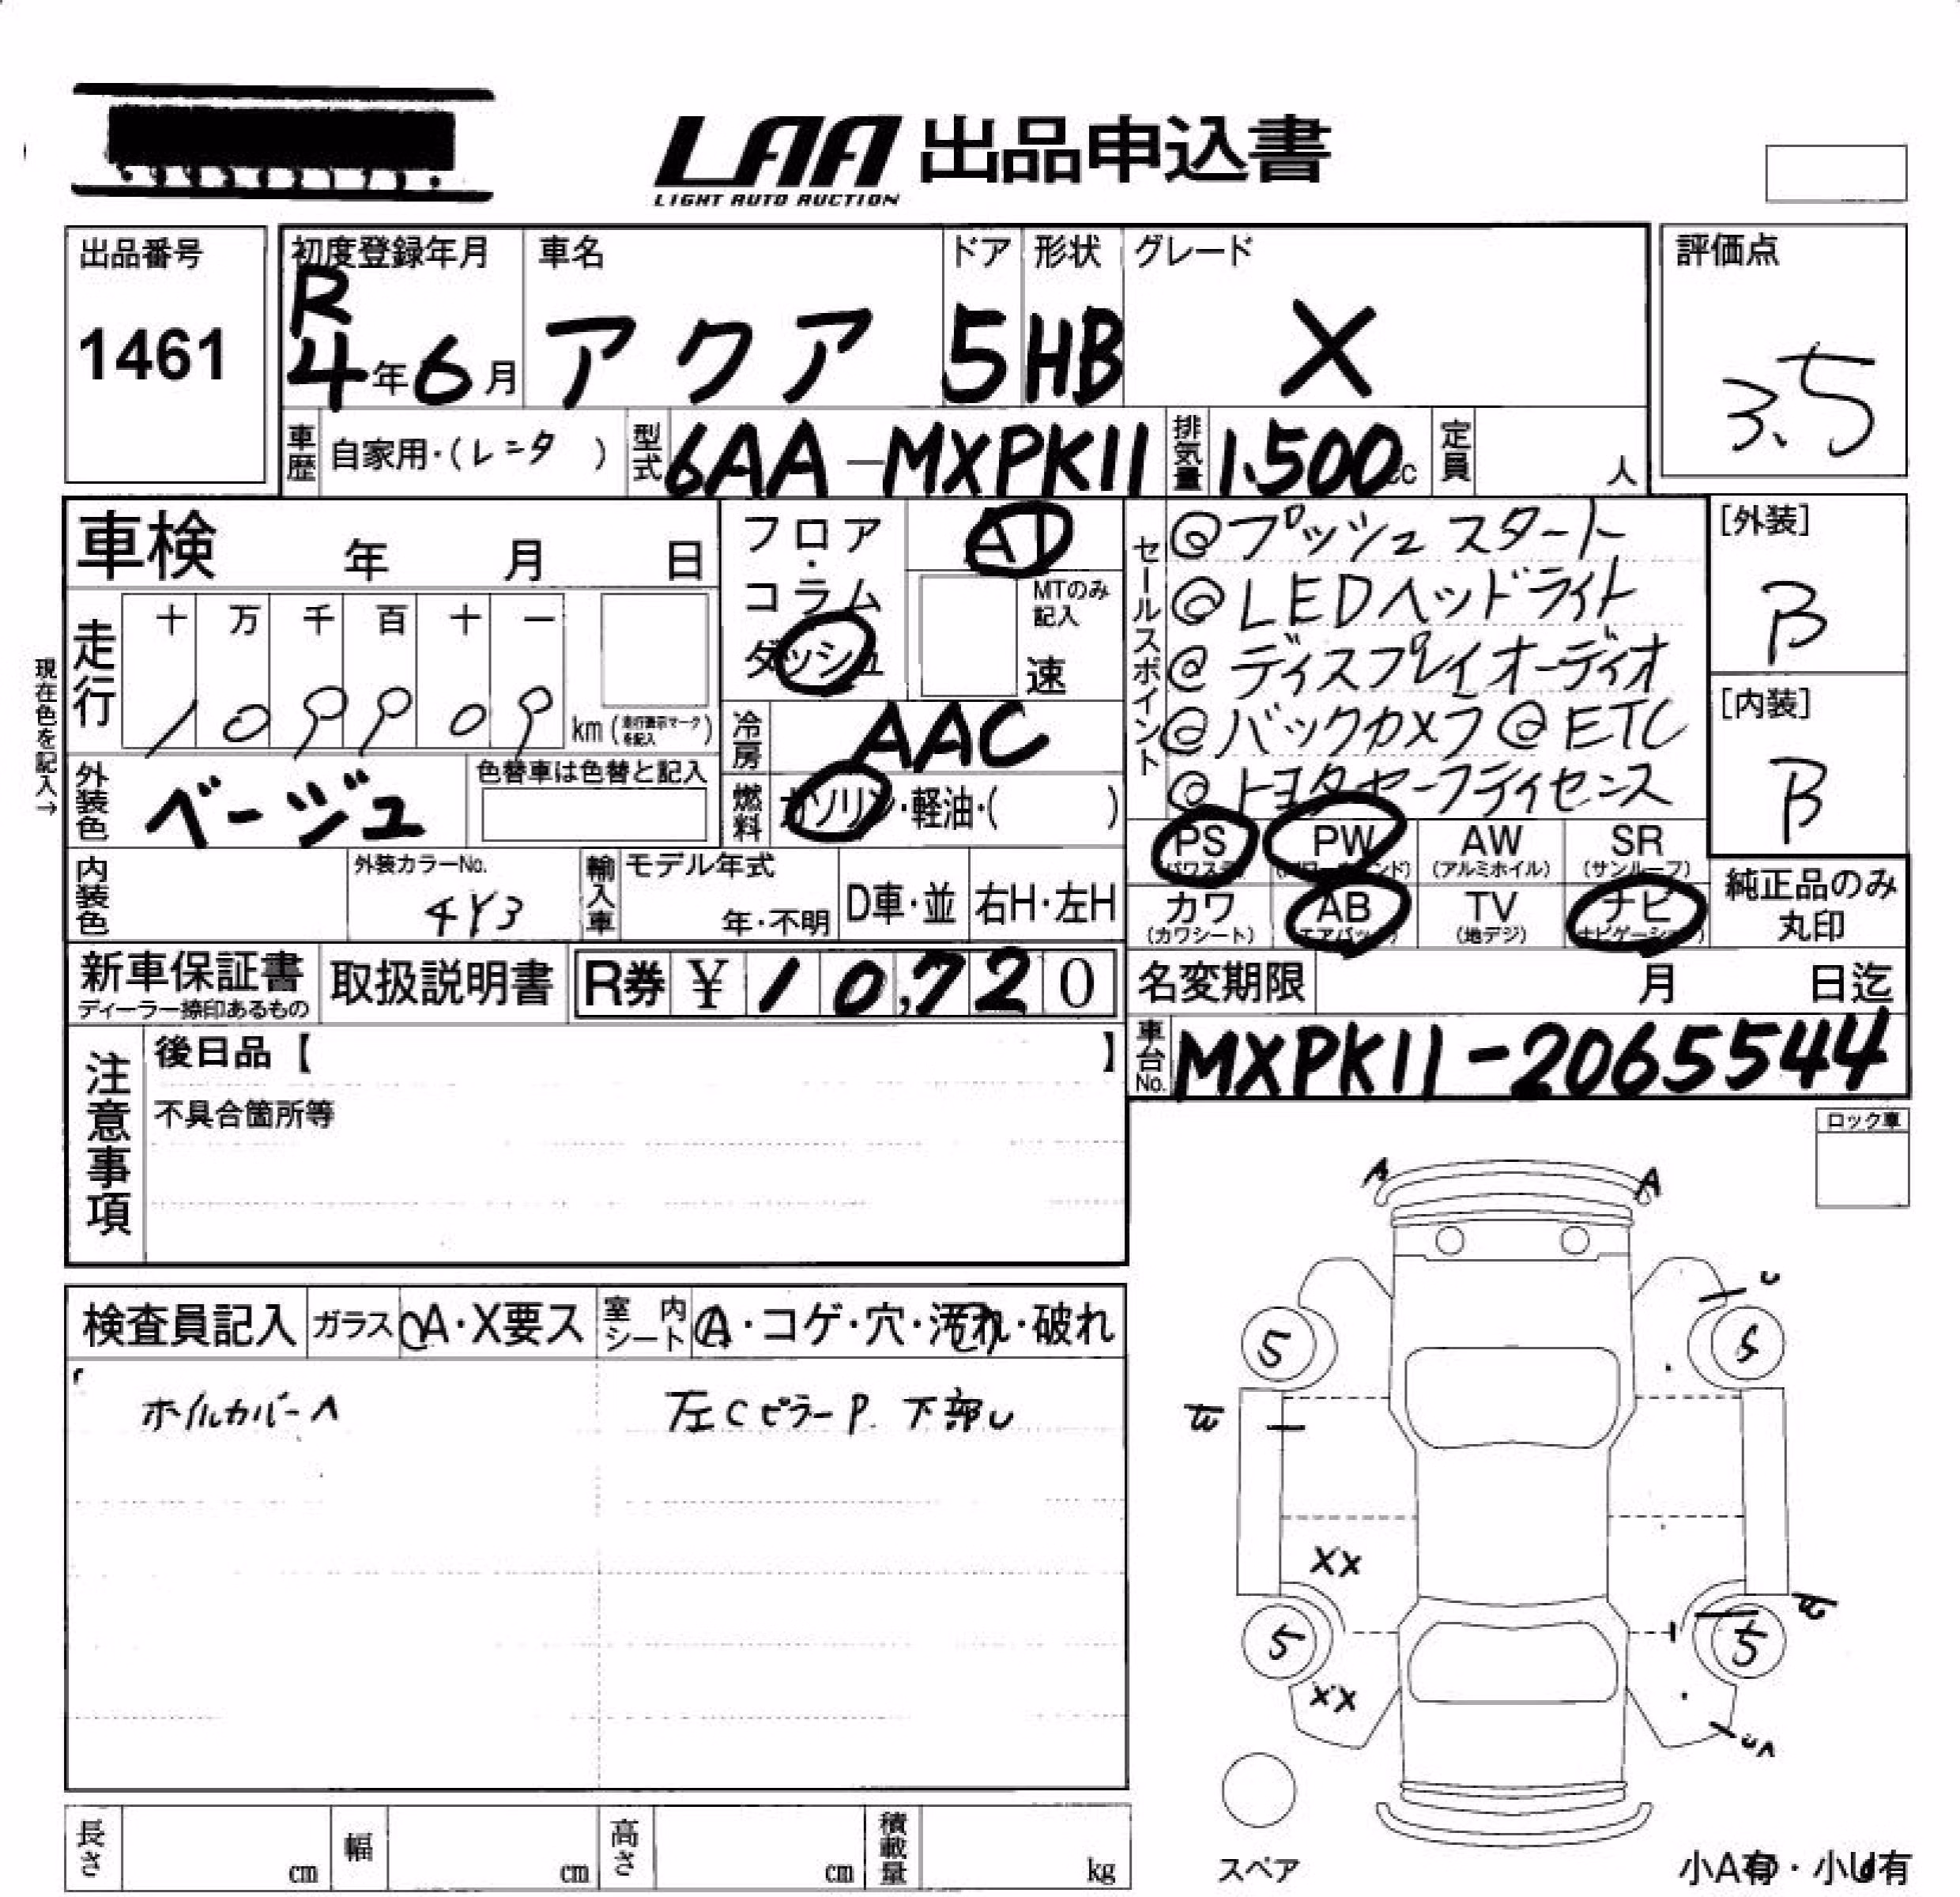 LAA 出品申込書
LIGHT AUTO AUCTION
出品番号
1461
初度登録年月
R
4年6月
車名
アクア
ドア
5
形状
HB
グレード
X
評価点
3.5
車歴
自家用・(レンタ)
型式
6AA-MXPK11
排気量
1,500cc
定員
人
車検 年 月 日
フロア・コラム
ダッシュ
AT
MTのみ記入
速
走行
十 万 千 百 十 一
1 0 9 9 0 9
km(走行表示マークを記入)
冷房
AAC
燃料
ガソリン・軽油・( )
現在色を記入→
外装色
ベージュ
色替車は色替と記入
内装色
外装カラーNo.
4Y3
輸入車
モデル年式
年・不明
D車・並
右H・左H
新車保証書
ディーラー捺印あるもの
取扱説明書
R券 ¥ 10,720
セールスポイント
@プッシュスタート
@LEDヘッドライト
@ディスプレイオーディオ
@バックカメラ@ETC
@トヨタセーフティセンス
PS
(パワステ)
PW
(パワーウインド)
AW
(アルミホイル)
SR
(サンルーフ)
カワ
(カワシート)
AB
(エアバッグ)
TV
(地デジ)
ナビ
(ナビゲーション)
[外装]
B
[内装]
B
純正品のみ
丸印
名変期限 月 日迄
車台No.
MXPK11-2065544
注意事項
後日品【 】
不具合箇所等
ロック車
検査員記入
ガラス
A・X要ス
室内シート
A・コゲ・穴・汚れ・破れ
ホイルカバーA
左CピラーP. 下部U
A
A
U
5
5
XX
5
5
XX
UA
スペア
長さ cm
幅 cm
高さ cm
積載量 kg
小A有・小U有